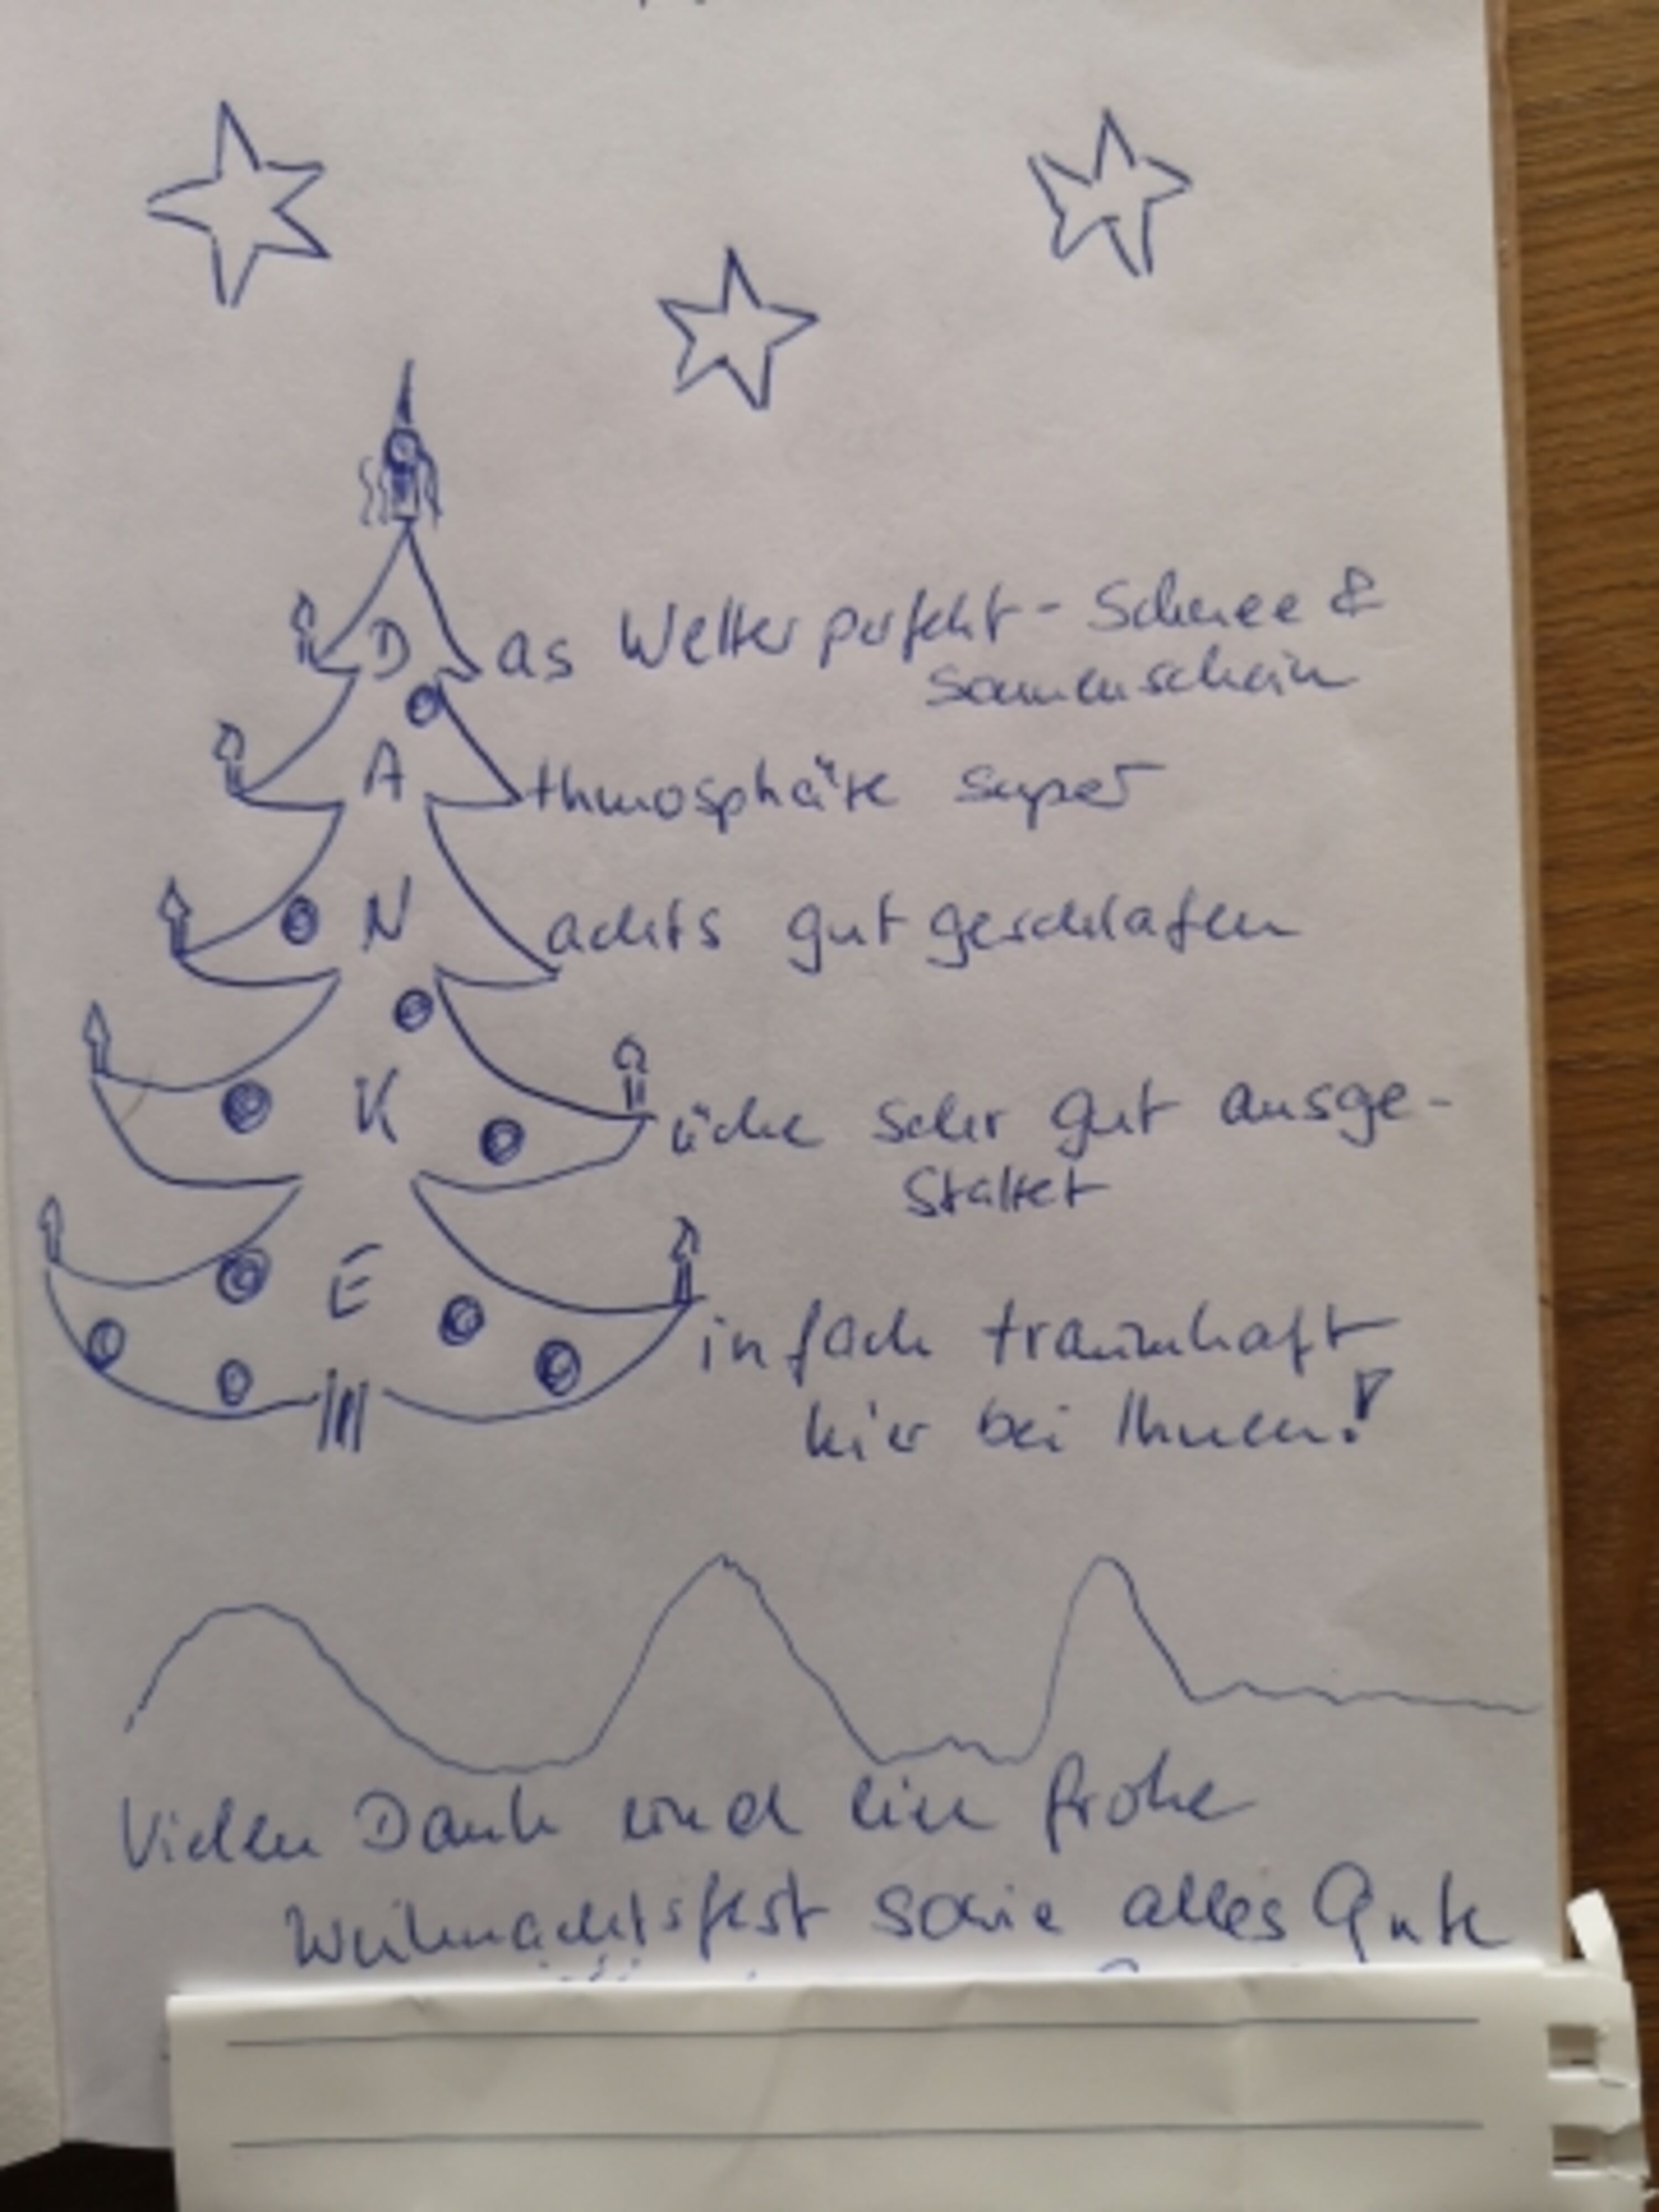 Das Wetter perfekt - Schnee &
Sonnenschein
Athmosphäre super
Nachts gut geschlafen
Küche sehr gut ausge-
stattet
Einfach traumhaft
hier bei Ihnen!
Vielen Dank und ein frohe
Weihnachtsfest sowie alles Gute